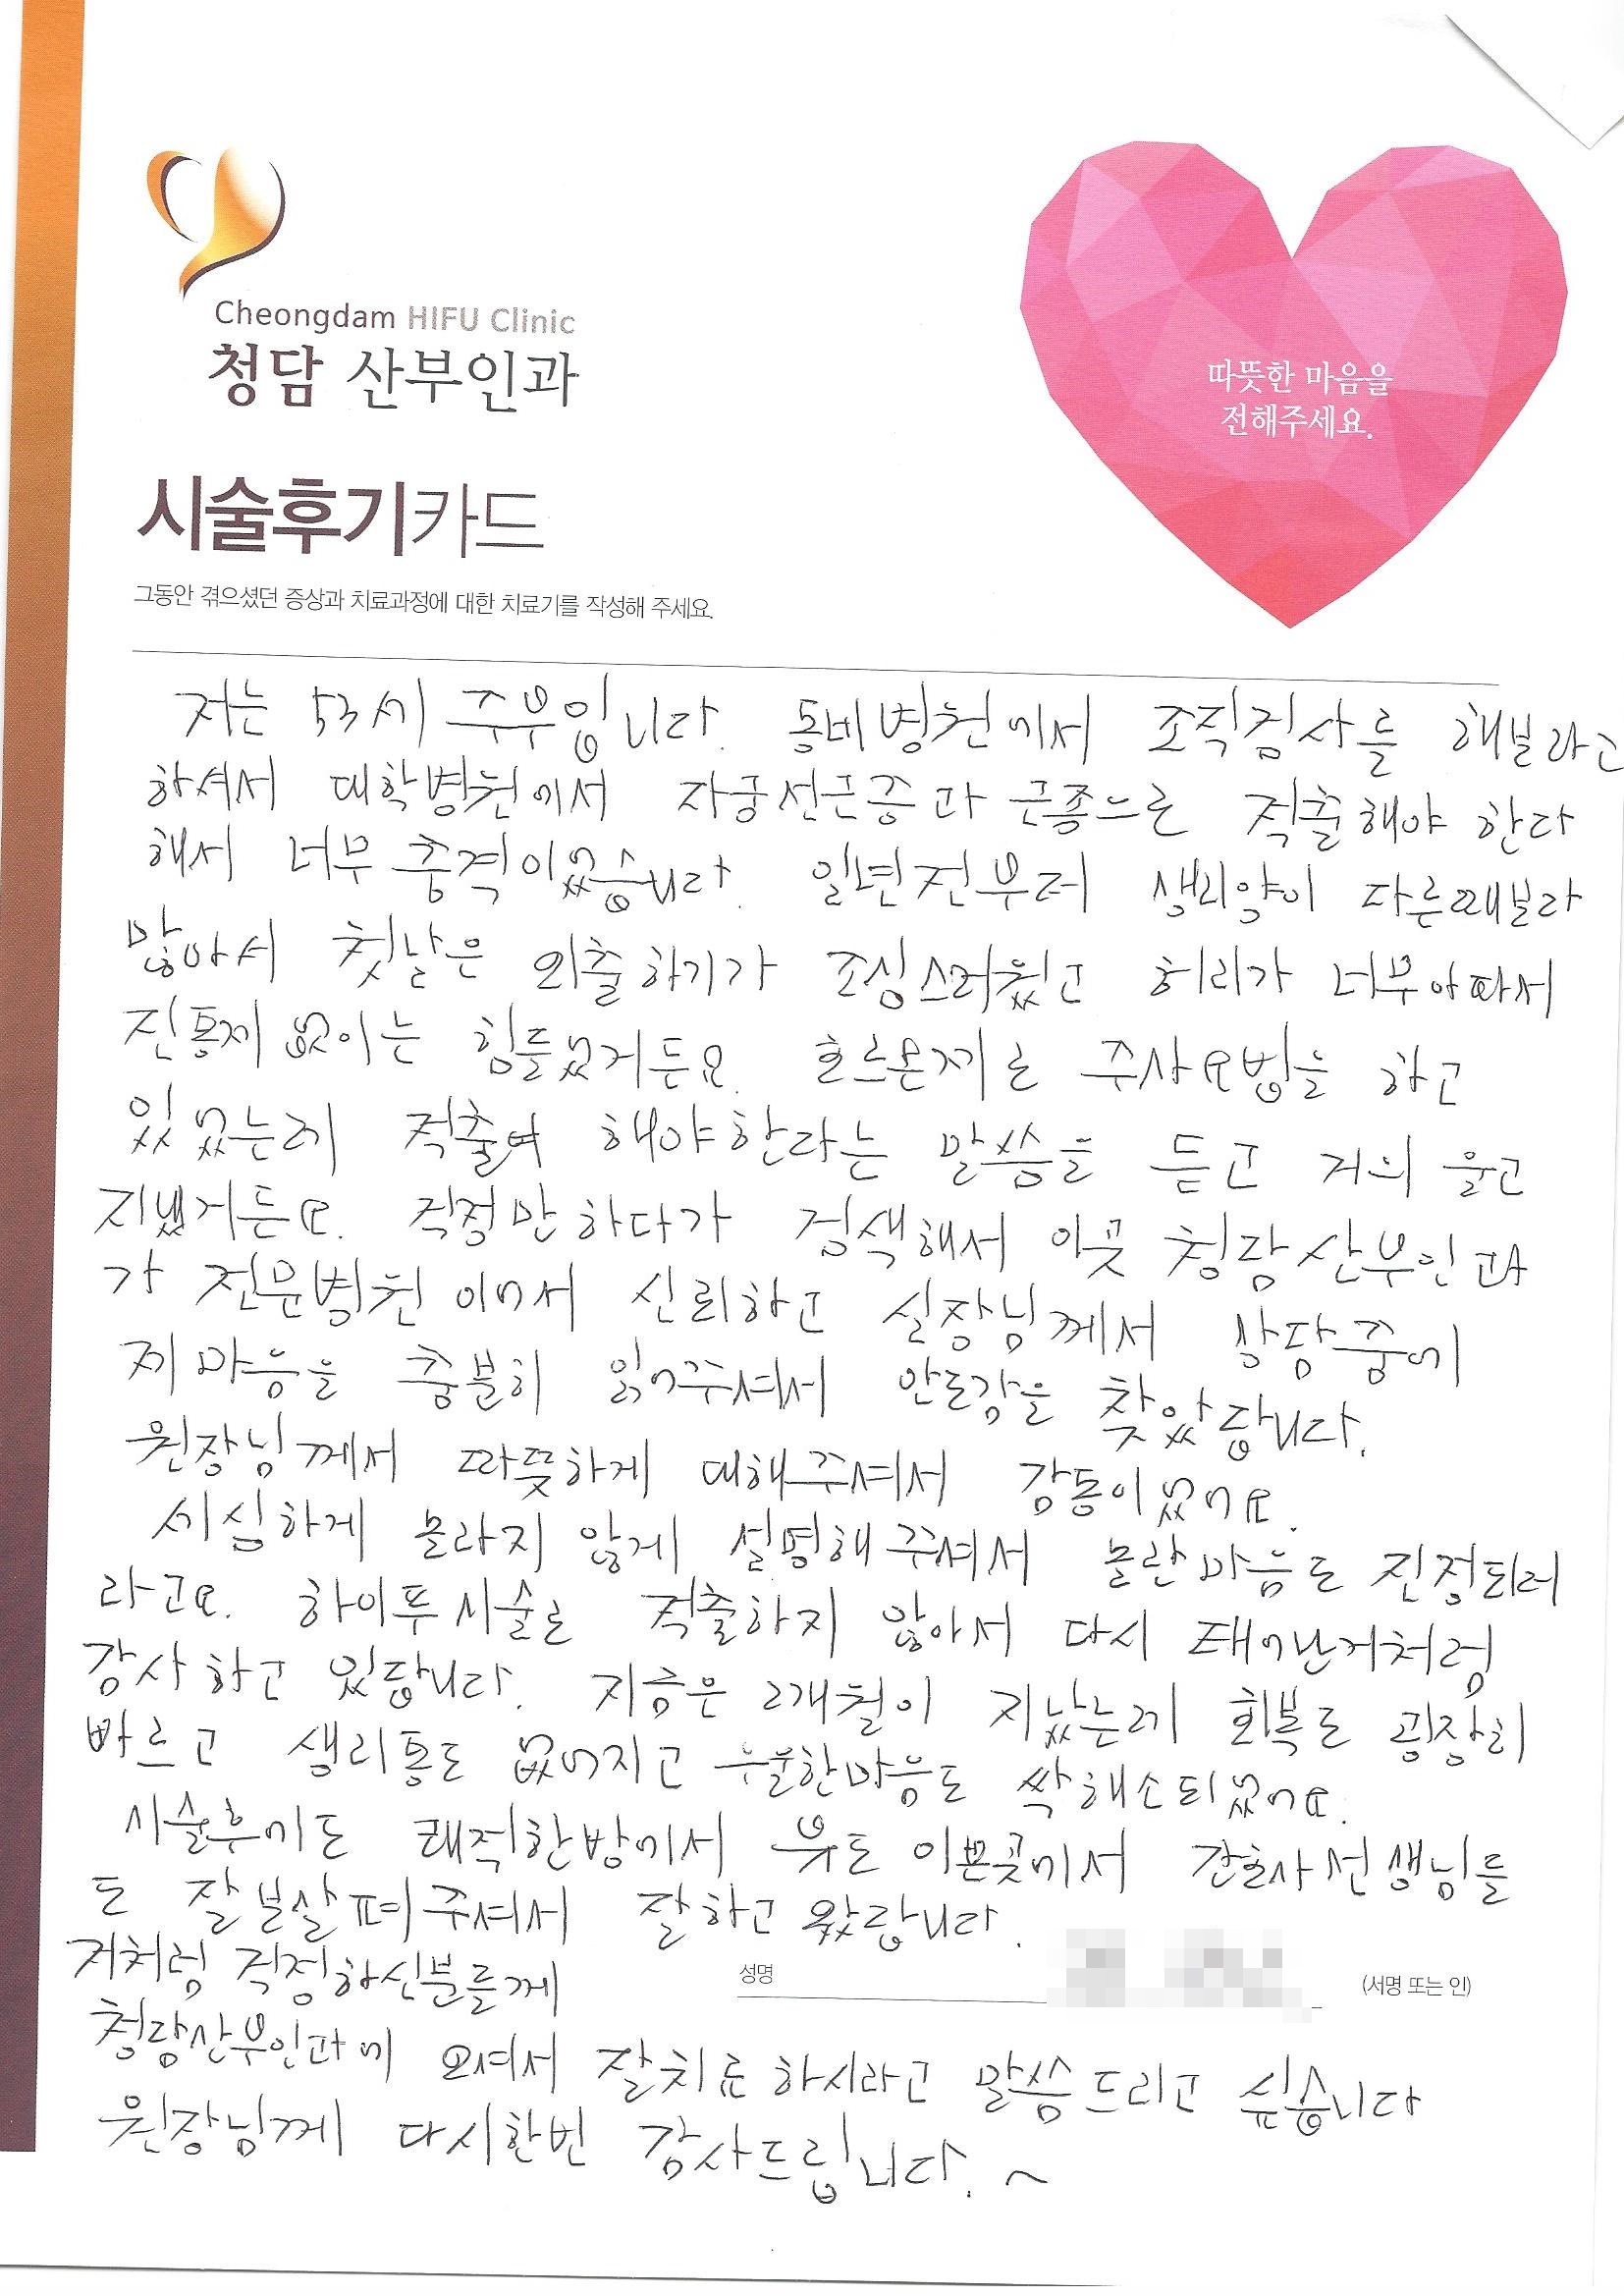 Cheongdam HIFU Clinic
청담 산부인과
따뜻한 마음을
전해주세요.
시술후기카드
그동안 겪으셨던 증상과 치료과정에 대한 치료기를 작성해 주세요.
저는 53세 주부입니다. 동네병원에서 조직검사를 해보라고
하셔서 대학병원에서 자궁선근증과 근종으로 적출해야 한다
해서 너무 충격이었습니다. 일년전부터 생리양이 다른때보다
많아서 첫날은 외출하기가 조심스러웠고 허리가 너무아파서
진통제없이는 힘들었거든요. 호르몬제로 주사요법을 하고
있었는데 적출여 해야한다는 말씀을 듣고 거의 울고
지냈거든요. 걱정만하다가 검색해서 이곳 청담산부인과
가 전문병원이어서 신뢰하고 실장님께서 상담중에
제마음을 충분히 읽어주셔서 안도감을 찾았답니다.
원장님께서 따뜻하게 대해주셔서 감동이었어요.
세심하게 놀라지 않게 설명해주셔서 놀란마음도 진정되더
라고요. 하이푸시술로 적출하지 않아서 다시 태어난거처럼
감사하고 있답니다. 지금은 2개월이 지났는데 회복도 굉장히
빠르고 생리통도 없어지고 우울한마음도 싹해소되었어요.
시술후에도 쾌적한방에서 뷰도 이쁜곳에서 간호사선생님들
도 잘보살펴주셔서 잘하고 왔답니다.
저처럼 걱정하신분들께
성명
(서명 또는 인)
청담산부인과에 오셔서 잘치료하시라고 말씀드리고 싶습니다
원장님께 다시한번 감사드립니다.~